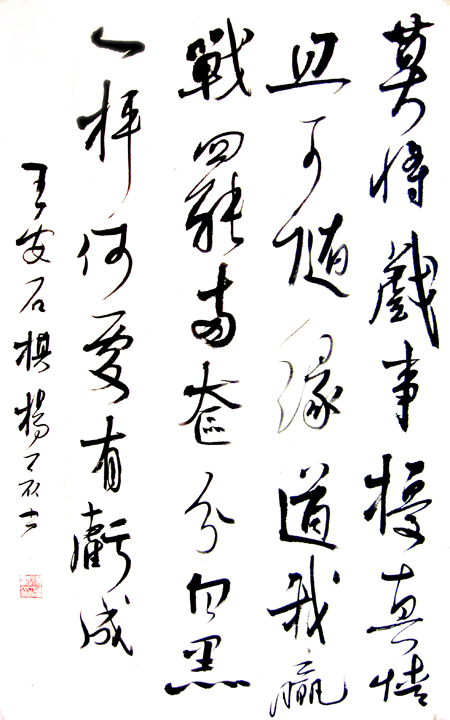 莫將戲事擾真情
且可随緣道我贏
戰罷兩奩分白黑
一枰何處有虧成
王安石棋 楊